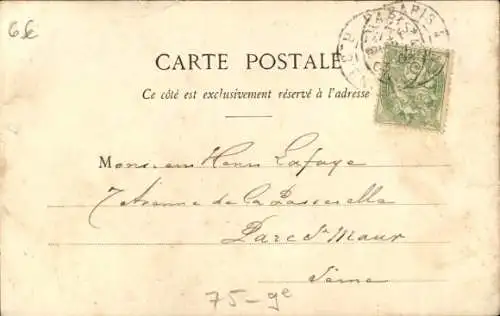 6€
PARIS
CARTE POSTALE
Ce côté est exclusivement réservé à l'adresse
Monsieur Henri Lafaye
7 Avenue de la Passerelle
Parc St Maur
Seine
75-9e